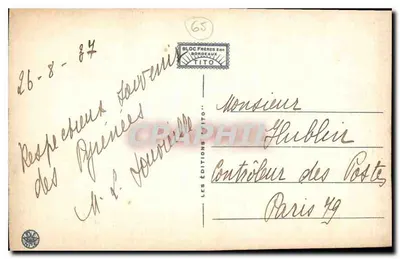 65
BLOC FRÈRES Edit
BORDEAUX
TITO
26-8-37
Respectueux souvenir
des Pyrénées
M. L.
LES ÉDITIONS "TITO"
CPAPHIL
Monsieur
Hublin
Contrôleur des Postes
Paris 79